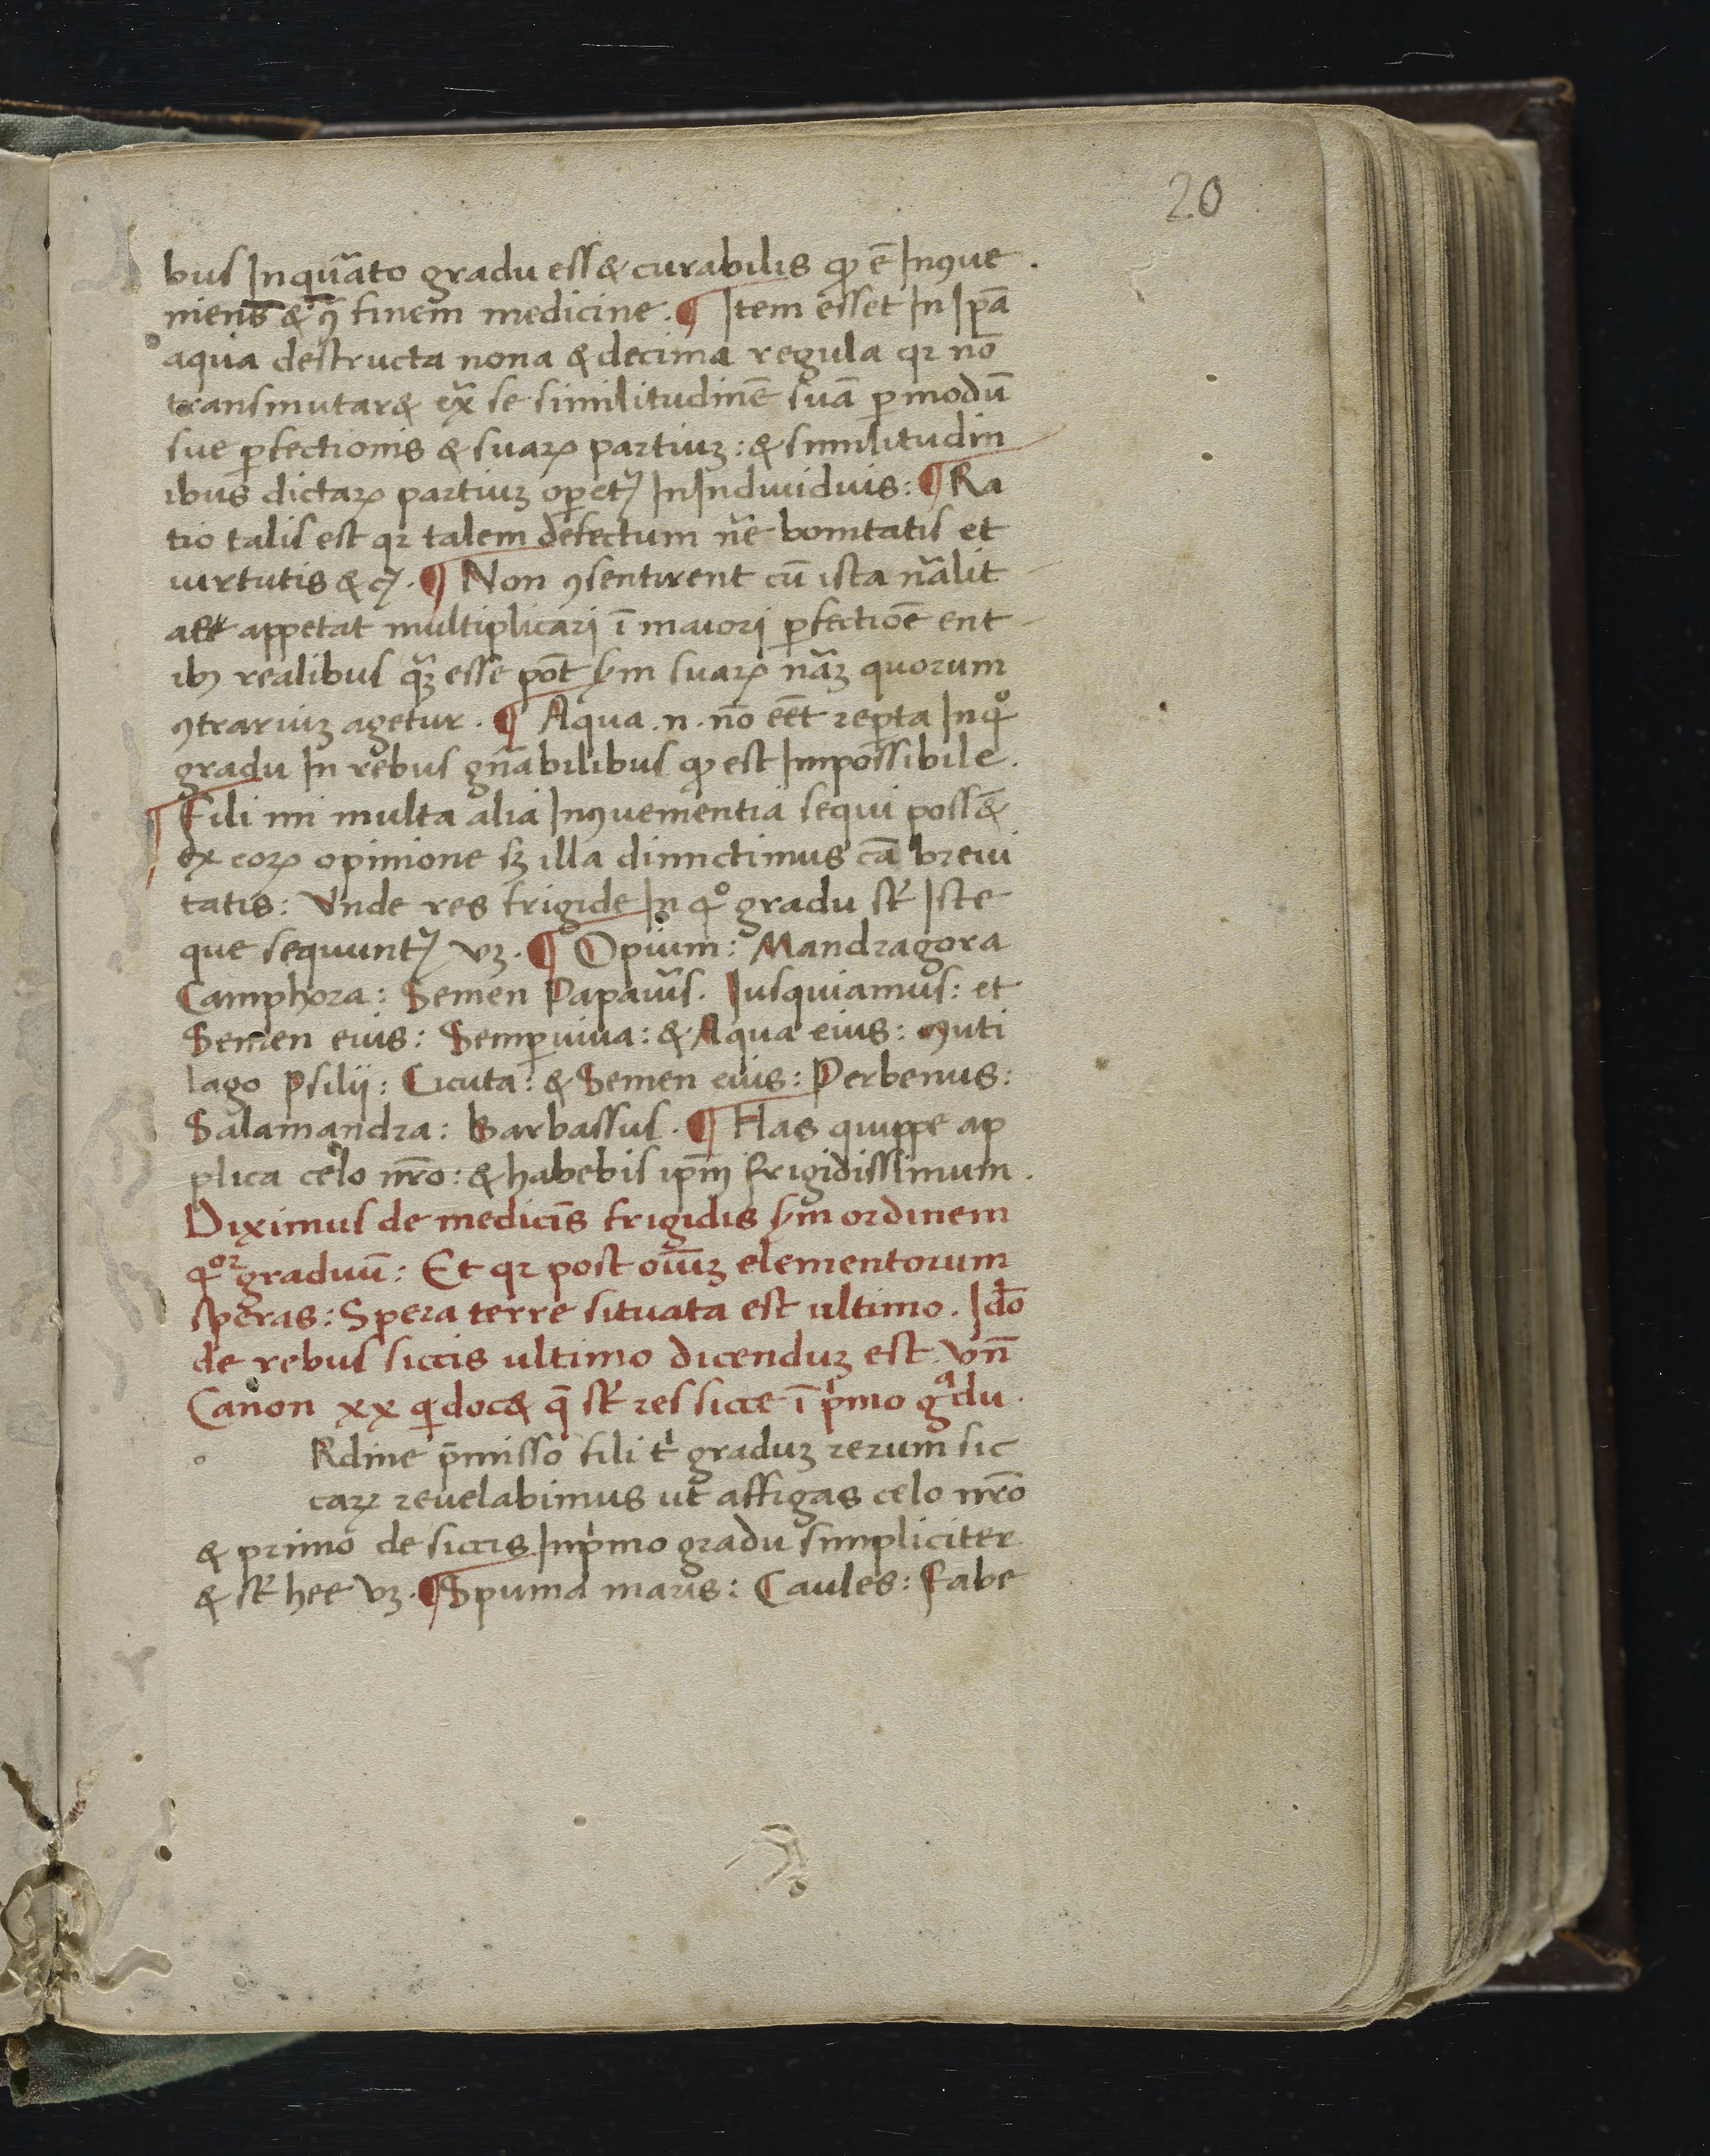 20
bus Inquãto gradu ess& curabilis qꝫ ē Inꝯue
niens & ꝯ̃ finem medicine. ¶ Item esset In Ipã
aqua destructa nona & decima regula qꝛ nō
transmutar& ex̃ se similitudinē suã ꝑ modū
sue ꝑfectionis & suaꝝ partiuꝫ: & similitudin
ibus dictaꝝ partiuꝫ oꝑet᷒ In Indiuiduis: ¶ Ra
tio talis est qꝛ talem defectum nẽ bonitatis et
uirtutis &c᷒. ¶ Non ꝯsentirent cū ista nãlit
appetat multiplicari ī maiori ꝑfectiōe ent
ibꝰ realibus qã esse pōt ẜm suaꝝ nãꝫ quorum
ꝯtrariuꝫ agetur. ¶ Aqua .n. nō eēt reꝑta In qͦ
gradu In rebus gñabilibus qꝫ est Impossibile.
¶ Fili mi multa alia Inꝯuenientia sequi poss&
ex eoꝝ opinione sꝫ illa dimictimus cã breui
tatis: Vnde res frigide In qͦ gradu st̃ Iste
que sequunt᷒ vꝫ. ¶ Opium: Mandragora
Camphora: Semen Papau̾s. Iusquiamus: et
Semen eius: Semꝑuiua: & Aqua eius: Muti
lago Psilij: Cicuta: & Semen eius: Perbenus:
Salamandra: Barbassus. ¶ Has quippe ap
plica celo nr̃o: & habebis ip̃m frigidissimum.
Diximus de medicīs frigidis ẜm ordinem
qͦʳ graduū: Et qꝛ post oīuꝫ elementorum
speras: Spera terre situata est ultimo. Idõ
de rebus siccis ultimo dicenduꝫ est. Vñ
Canon xx qi doc& q̄ st̃ res sicce ī pⁱmo gᵃdu.
o Rdine p̄misso fili tⁱ graduꝫ rerum sic
caꝝ reuelabimus ut affigas celo nr̃o
& primo de siccis In pⁱmo gradu simpliciter
& st̃ hee vꝫ. ¶ Spuma maris: Caules: Fabe